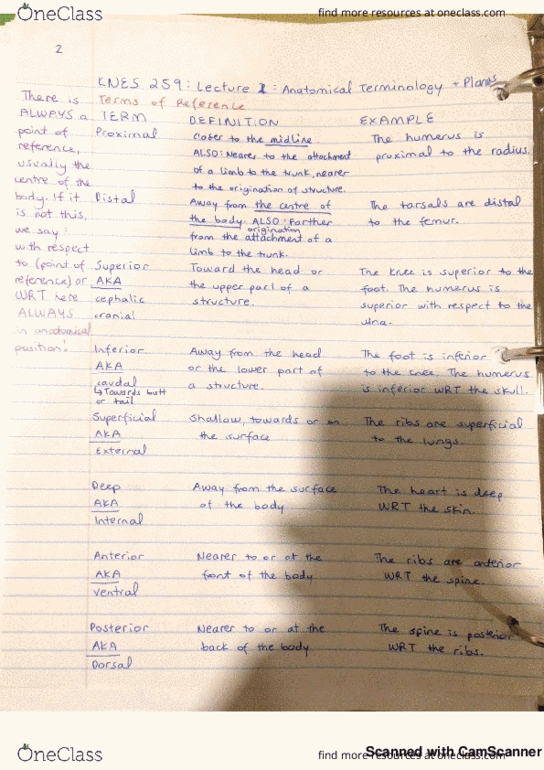 OneClass
find more resources at oneclass.com
2
KNES 259: Lecture 1: Anatomical Terminology + Planes
There is
ALWAYS a
point of
reference,
usually the
centre of the
body. If it
is not this,
we say:
with respect
to (point of
reference) or
WRT here
ALWAYS
in anatomical
position!
Terms of Reference
TERM DEFINITION EXAMPLE
Proximal
closer to the midline.
ALSO: Nearer to the attachment
of a limb to the trunk, nearer
to the origination of structure.
The humerus is
proximal to the radius.
Distal
Away from the centre of
the body. ALSO: Farther
origination
from the attachment of a
limb to the trunk.
The tarsals are distal
to the femur.
Superior
AKA
cephalic
cranial
Toward the head or
the upper part of a
structure.
The knee is superior to the
foot. The humerus is
superior with respect to the
ulna.
Inferior
AKA
caudal
↳ Towards butt
or tail
Away from the head
or the lower part of
a structure.
The foot is inferior
to the knee. The humerus
is inferior WRT the skull.
Superficial
AKA
External
Shallow, towards or on
the surface
The ribs are superficial
to the lungs.
Deep
AKA
Internal
Away from the surface
of the body
The heart is deep
WRT the skin.
Anterior
AKA
Ventral
Nearer to or at the
front of the body
The ribs are anterior
WRT the spine.
Posterior
AKA
Dorsal
Nearer to or at the
back of the body
The spine is posterior
WRT the ribs.
OneClass
find more resources at oneclass.com
Scanned with CamScanner